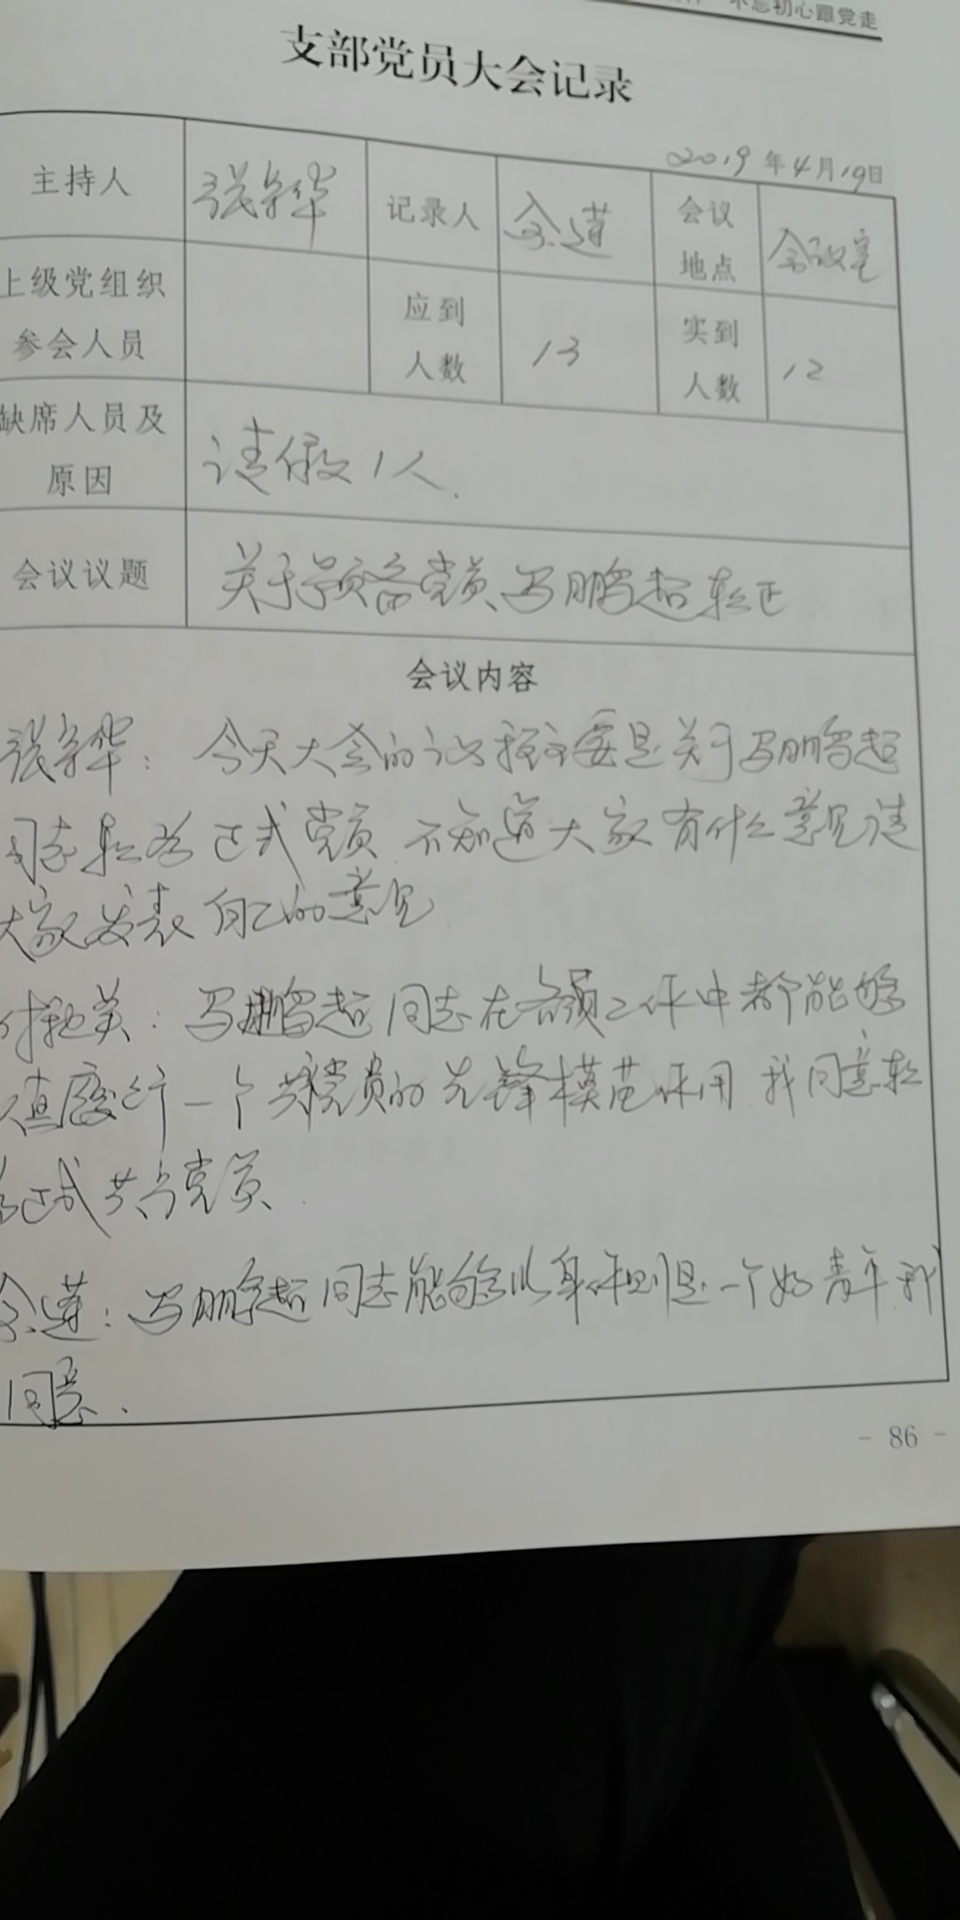 不忘初心跟党走
支部党员大会记录
2019年4月19日
主持人 张宗华 记录人 会议地点 会议室
上级党组织参会人员 应到人数 13 实到人数 12
缺席人员及原因 请假1人.
会议议题 关于预备党员马鹏超转正
会议内容
张宗华：今天大会的议程主要是关于马鹏超
同志转为正式党员 不知道大家有什么意见请
大家发表自己的意见
马鹏超同志在各项工作中都能够
一个共产党员的先锋模范作用 我同意转
为正式共产党员
马鹏超同志能够以身作则是一个好青年 我
同意.
- 86 -